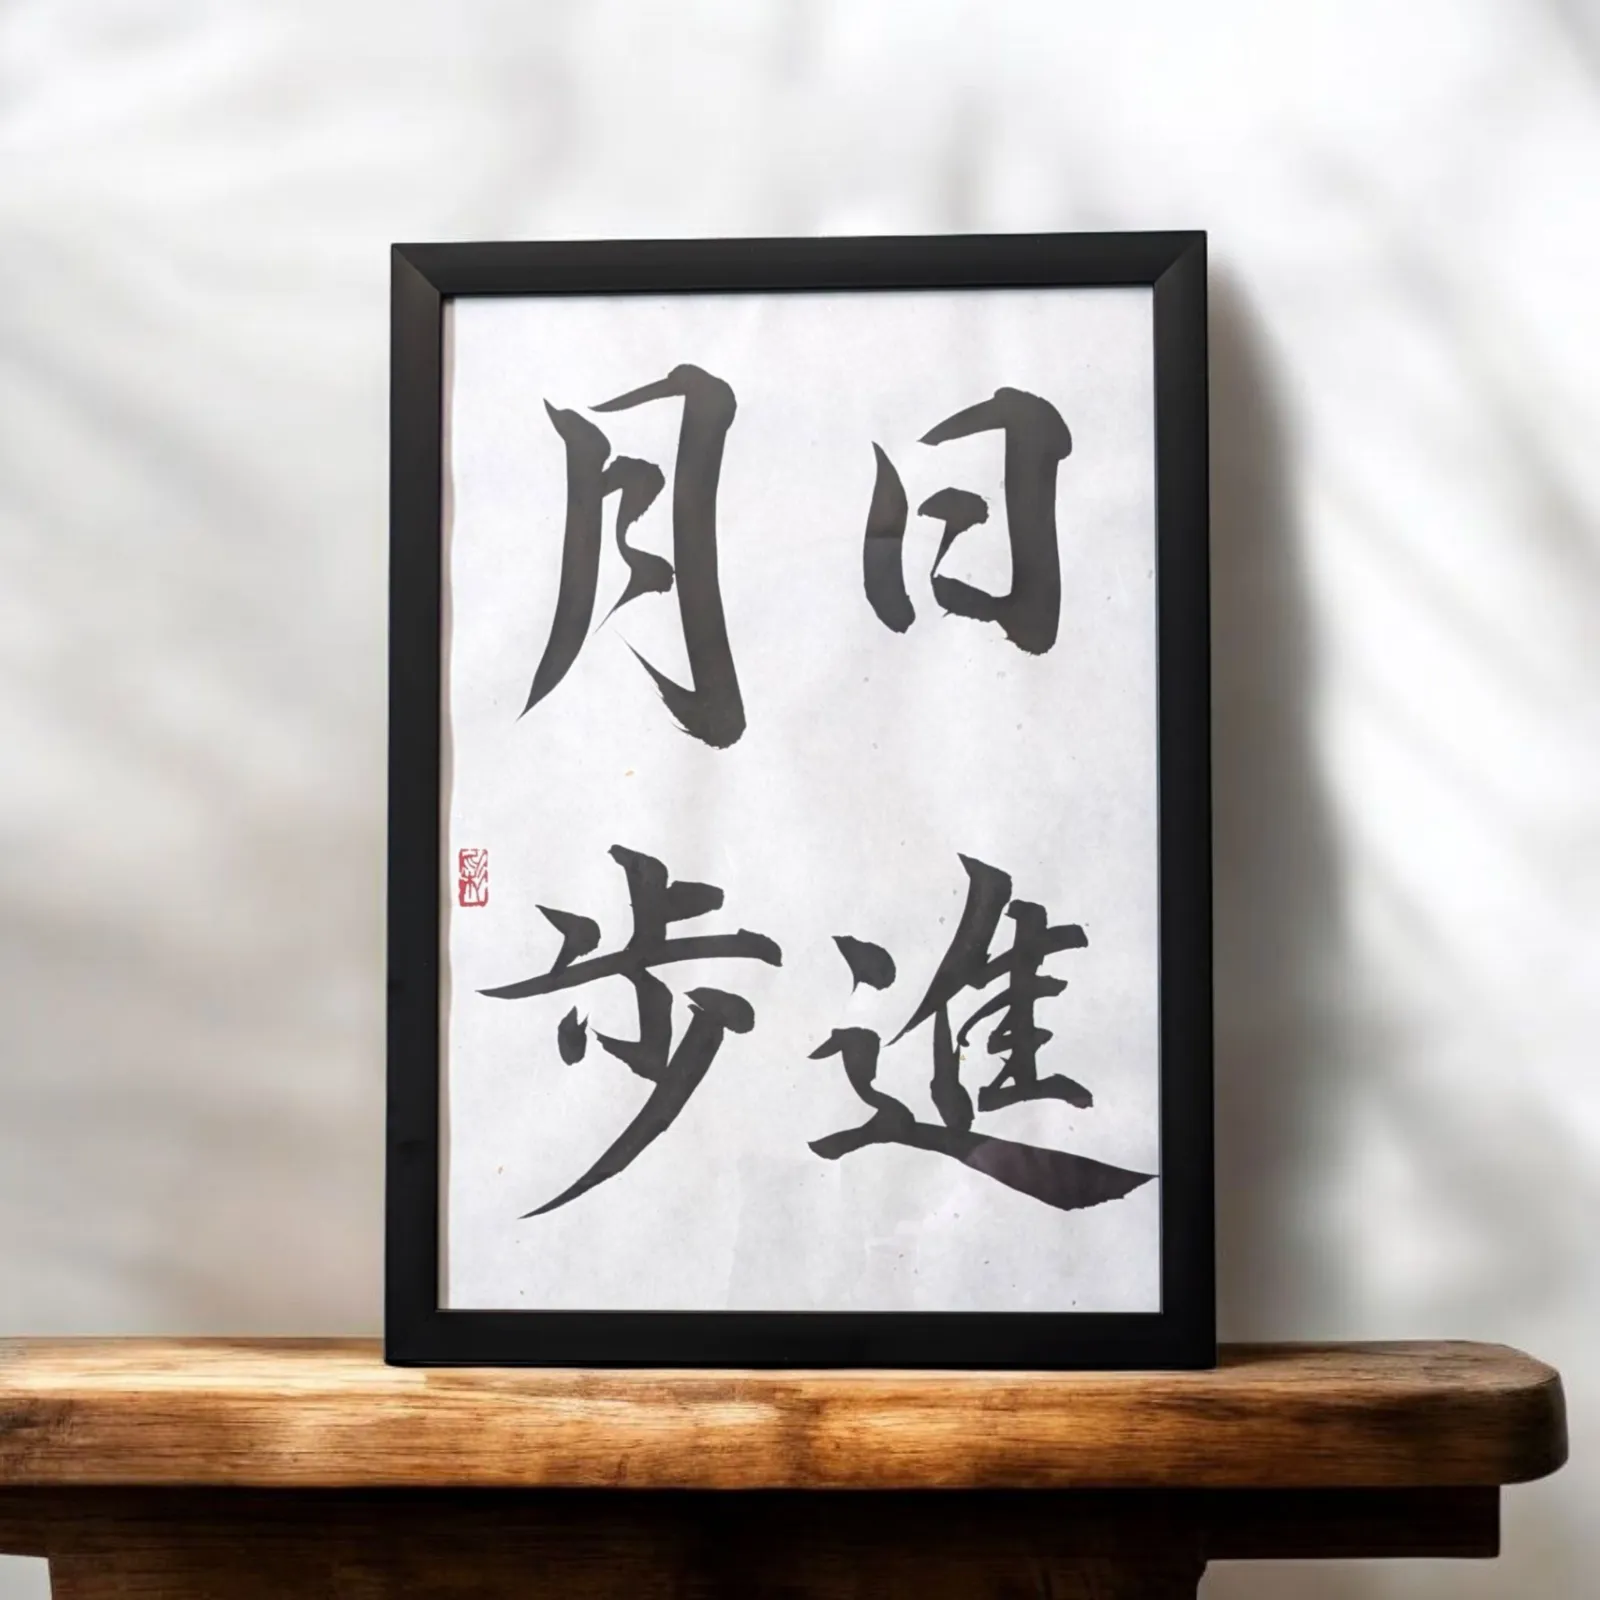 日進
月歩
彩